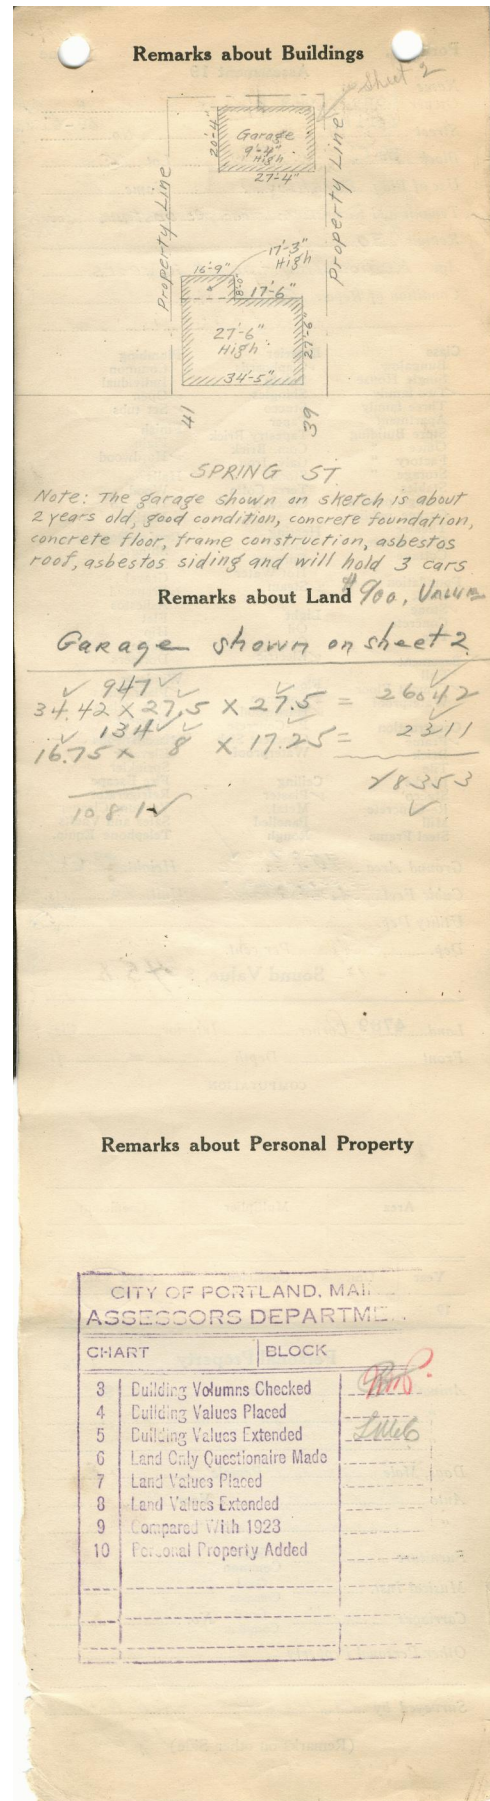 Remarks about Buildings
Sheet 2
20'-4"
Garage
9'-4"
High
27'-4"
Property Line
Property Line
17'-3"
High
16'-9"
8'-0"
17'-6"
27'-6"
High
27'-6"
34'-5"
41
39
SPRING ST.
Note: The garage shown on sketch is about
2 years old, good condition, concrete foundation,
concrete floor, frame construction, asbestos
roof, asbestos siding and will hold 3 cars
$900, Value
Remarks about Land
Garage shown on sheet 2
947
34.42 x 27.5 x 27.5 = 26042
134
16.75 x 8 x 17.25 = 2311
28353
1081
Remarks about Personal Property
CITY OF PORTLAND, MAI
ASSESSORS DEPARTME
CHART BLOCK
3 Building Volumns Checked
4 Building Values Placed
5 Building Values Extended
6 Land Only Questionaire Made
7 Land Values Placed
8 Land Values Extended
9 Compared With 1923
10 Personal Property Added